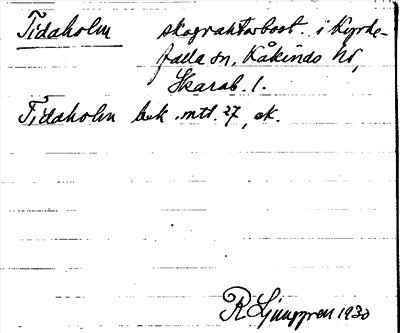 Tidaholm skogvaktarbost. i Kyrke-
falla sn, Kåkinds hd,
Skarab. l.
Tidaholm bek. mtl. 27, ek.
R Ljunggren 1930